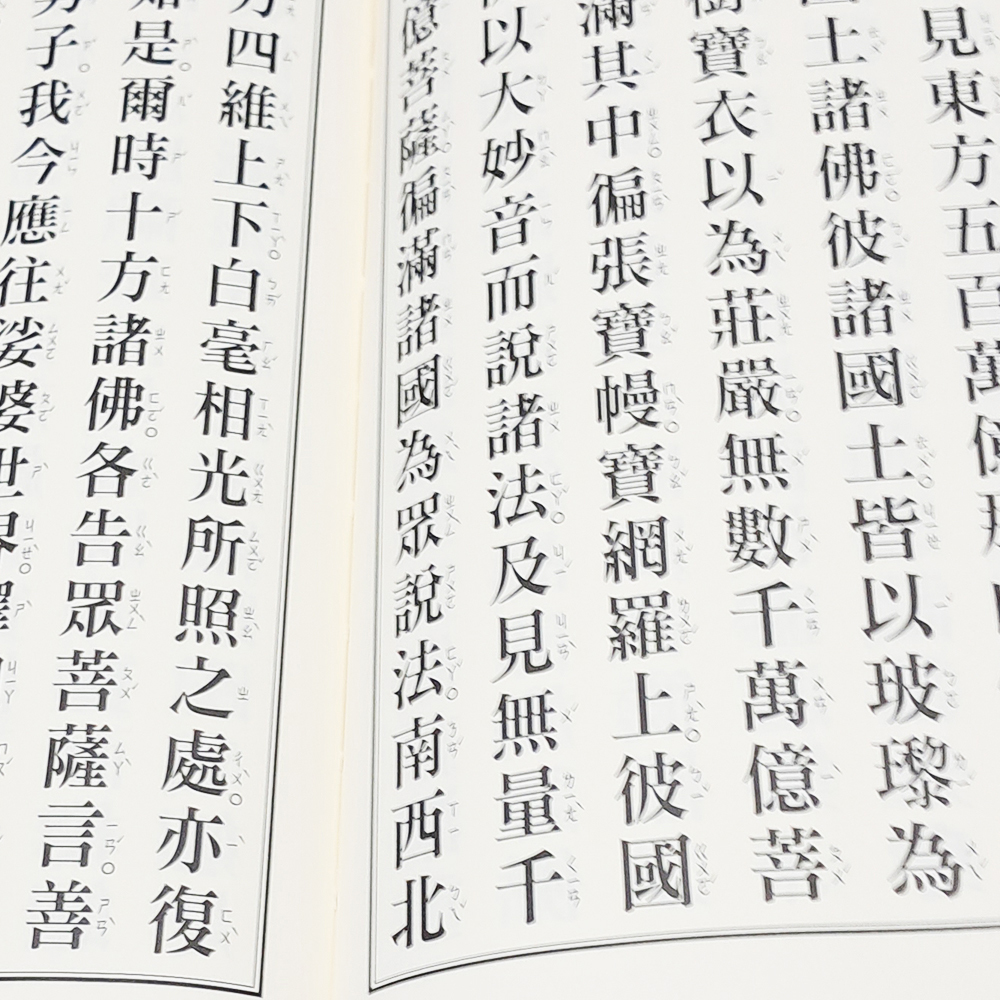 見東方五百萬億
土諸佛彼諸國土皆以玻瓈為
樹寶衣以為莊嚴無數千萬億菩
滿其中徧張寶幔寶網羅上彼國
以大妙音而說諸法及見無量千
億菩薩徧滿諸國為眾說法南西北
方四維上下白毫相光所照之處亦復
如是爾時十方諸佛各告眾菩薩言善
男子我今應往娑婆世界釋